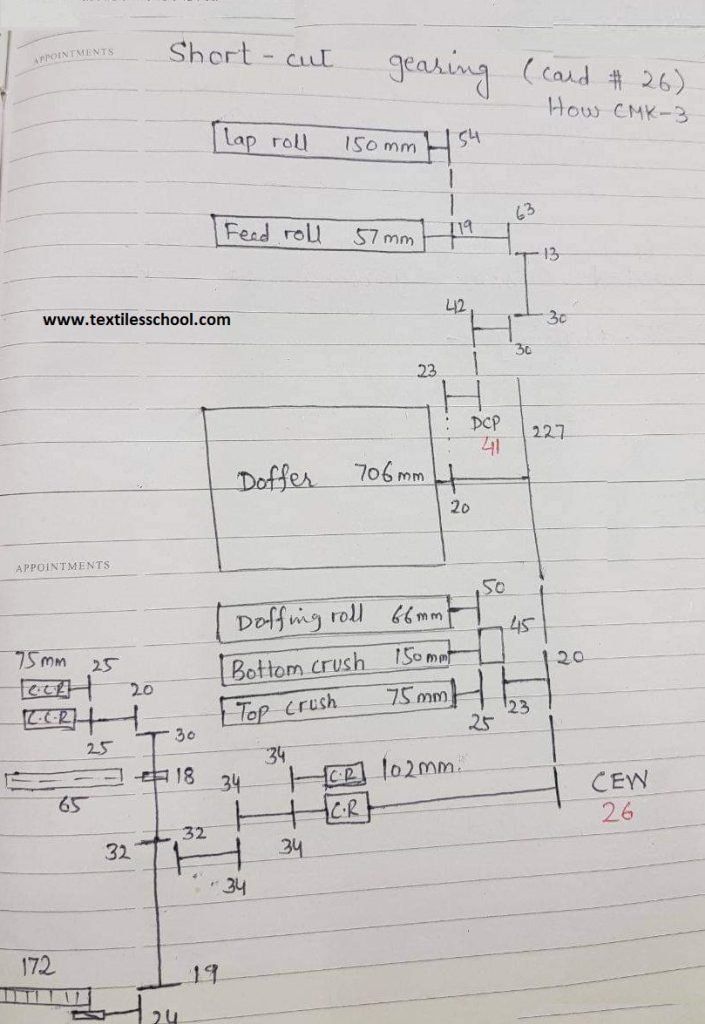 APPOINTMENTS
Short-cut gearing (card # 26)
How CMK-3
Lap roll 150 mm
54
Feed roll 57 mm
19
63
13
www.textilesschool.com
42
30
30
23
DCP
41
227
Doffer 706 mm
20
APPOINTMENTS
50
Doffing roll 66 mm
45
Bottom crush 150 mm
20
Top crush 75 mm
25
23
75 mm
25
C.C.R
20
C.C.R
25
30
18
65
34
34
C.R
102 mm.
C.R
34
CEW
26
32
32
34
172
19
24